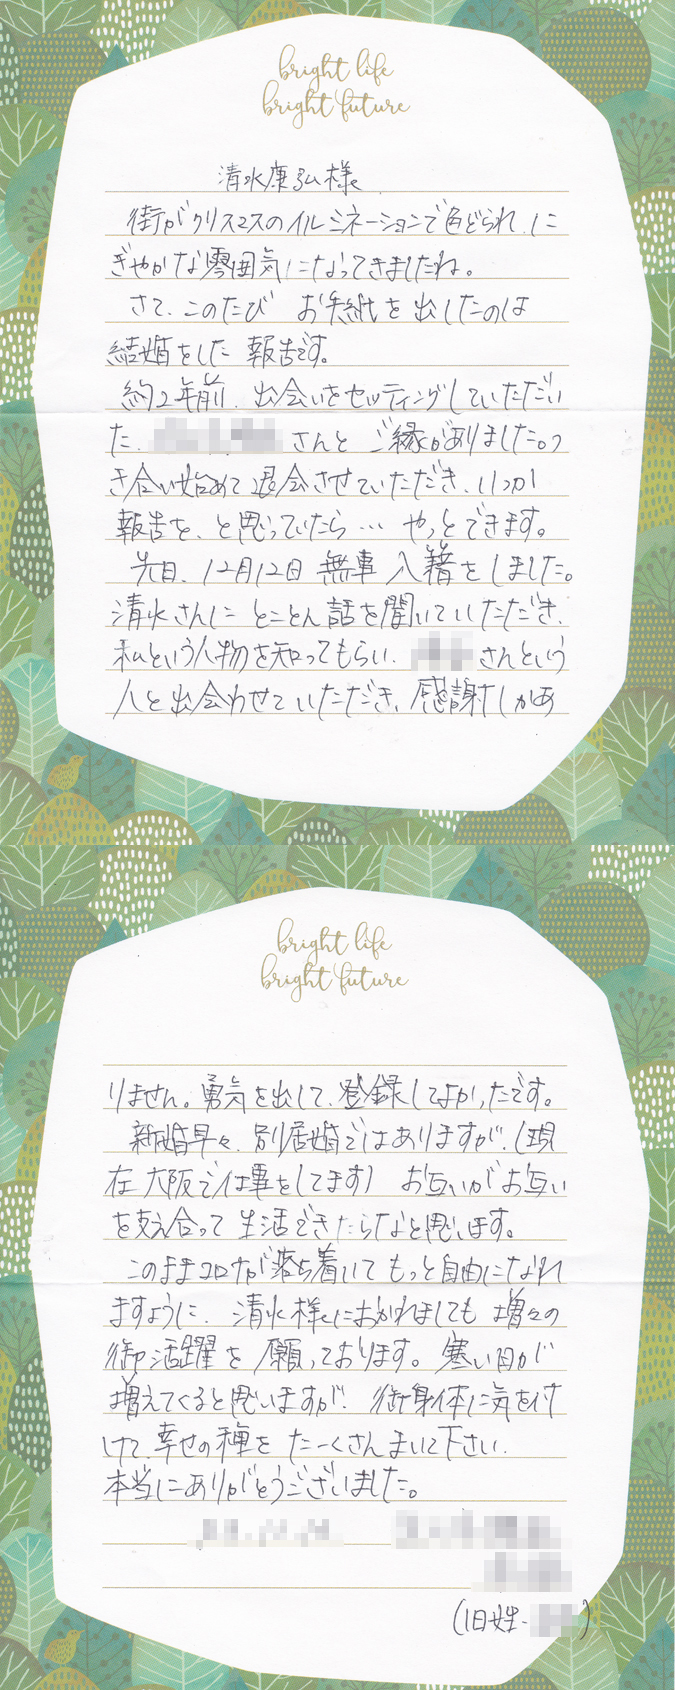 bright life
bright future
清水康弘様
街がクリスマスのイルミネーションで色どられ、に
ぎやかな雰囲気になってきましたね。
さて、このたび お手紙を出したのは
結婚をした 報告です。
約2年前、出会いをセッティングしていただい
た、さんと ご縁がありました。つ
き合い始めて退会させていただき、いつか
報告を、と思っていたら… やっとできます。
先日、12月12日 無事 入籍をしました。
清水さんに とことん 話を聞いていただき、
私という人物を知ってもらい、さんという
人と出会わせていただき、感謝しかあ
bright life
bright future
りません。勇気を出して、登録してよかったです。
新婚早々、別居婚ではありますが、(現
在 大阪で仕事をしてます) お互いがお互い
を支え合って 生活できたらなと思います。
このままコロナが落ち着いて もっと自由になれ
ますように、清水様におかれましても 増々の
御活躍を 願っております。寒い日が
増えてくると思いますが、御身体に気を付
けて、幸せの種を たーくさんまいて下さい。
本当にありがとうございました。
(旧姓・)